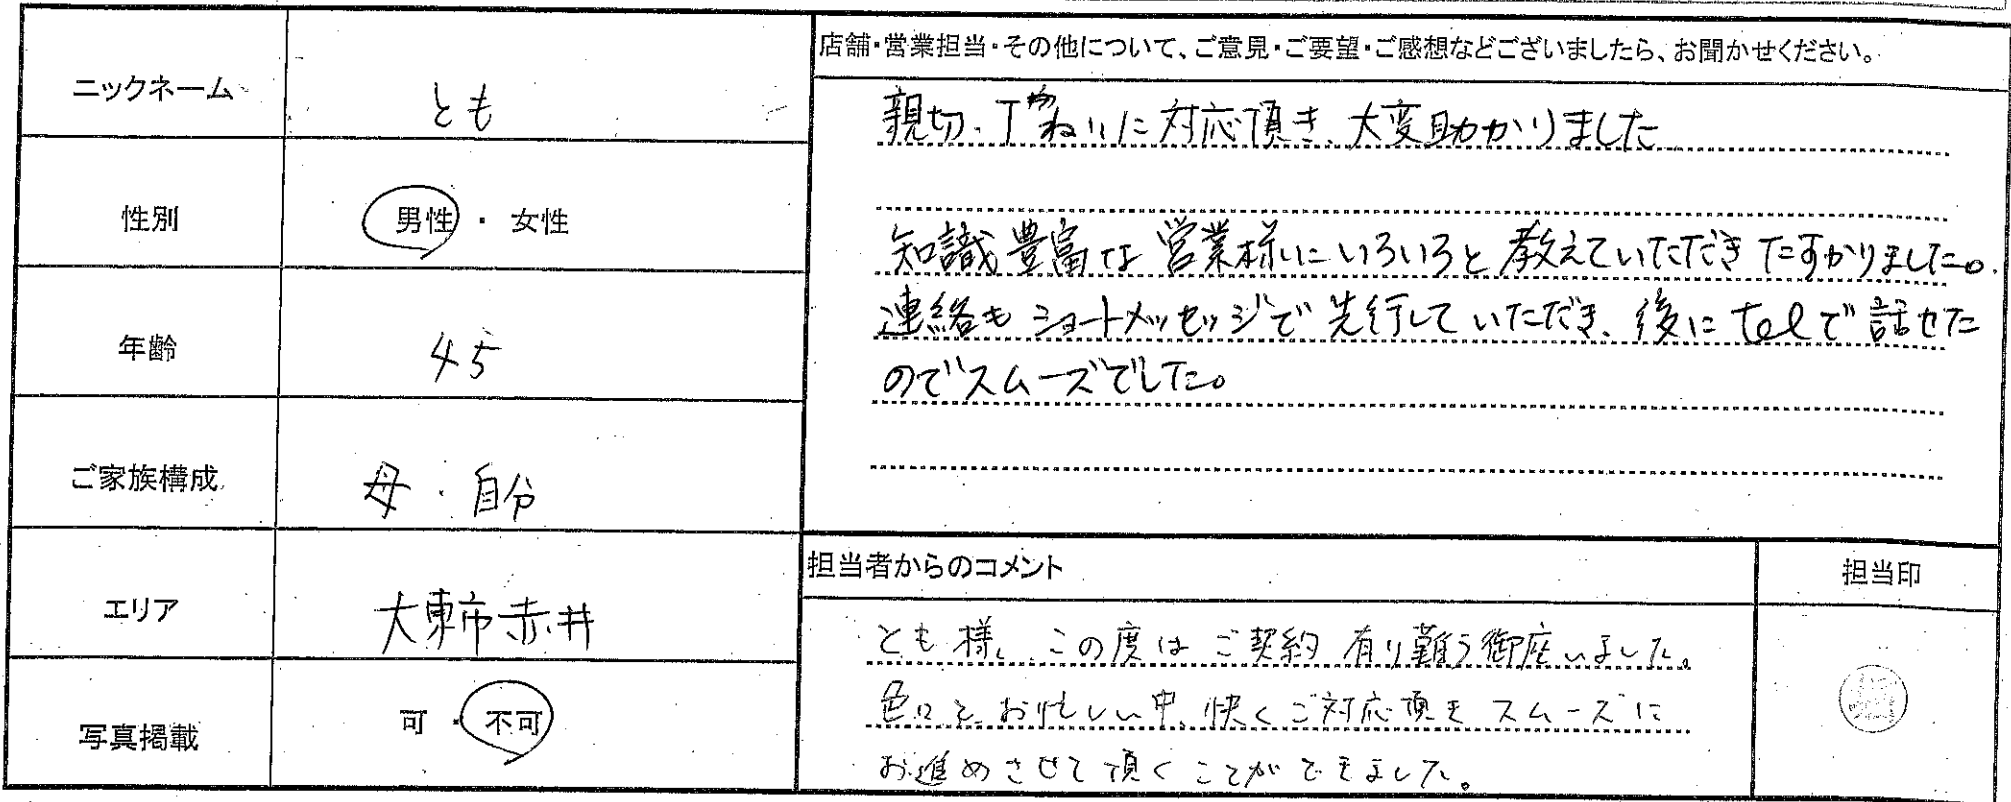 ニックネーム
とも
性別
男性・女性
年齢
45
ご家族構成
母・自分
エリア
大東市赤井
写真掲載
可・不可
店舗・営業担当・その他について、ご意見・ご要望・ご感想などございましたら、お聞かせください。
親切、丁ねいに対応頂き、大変助かりました
知識豊富な営業様にいろいろと教えていただきたすかりました。
連絡もショートメッセッジで先行していただき、後にtelで話せた
のでスムーズでした。
担当者からのコメント
担当印
とも様、この度はご契約有り難う御座いました。
色々とお忙しい中、快くご対応頂きスムーズに
お進めさせて頂くことができました。